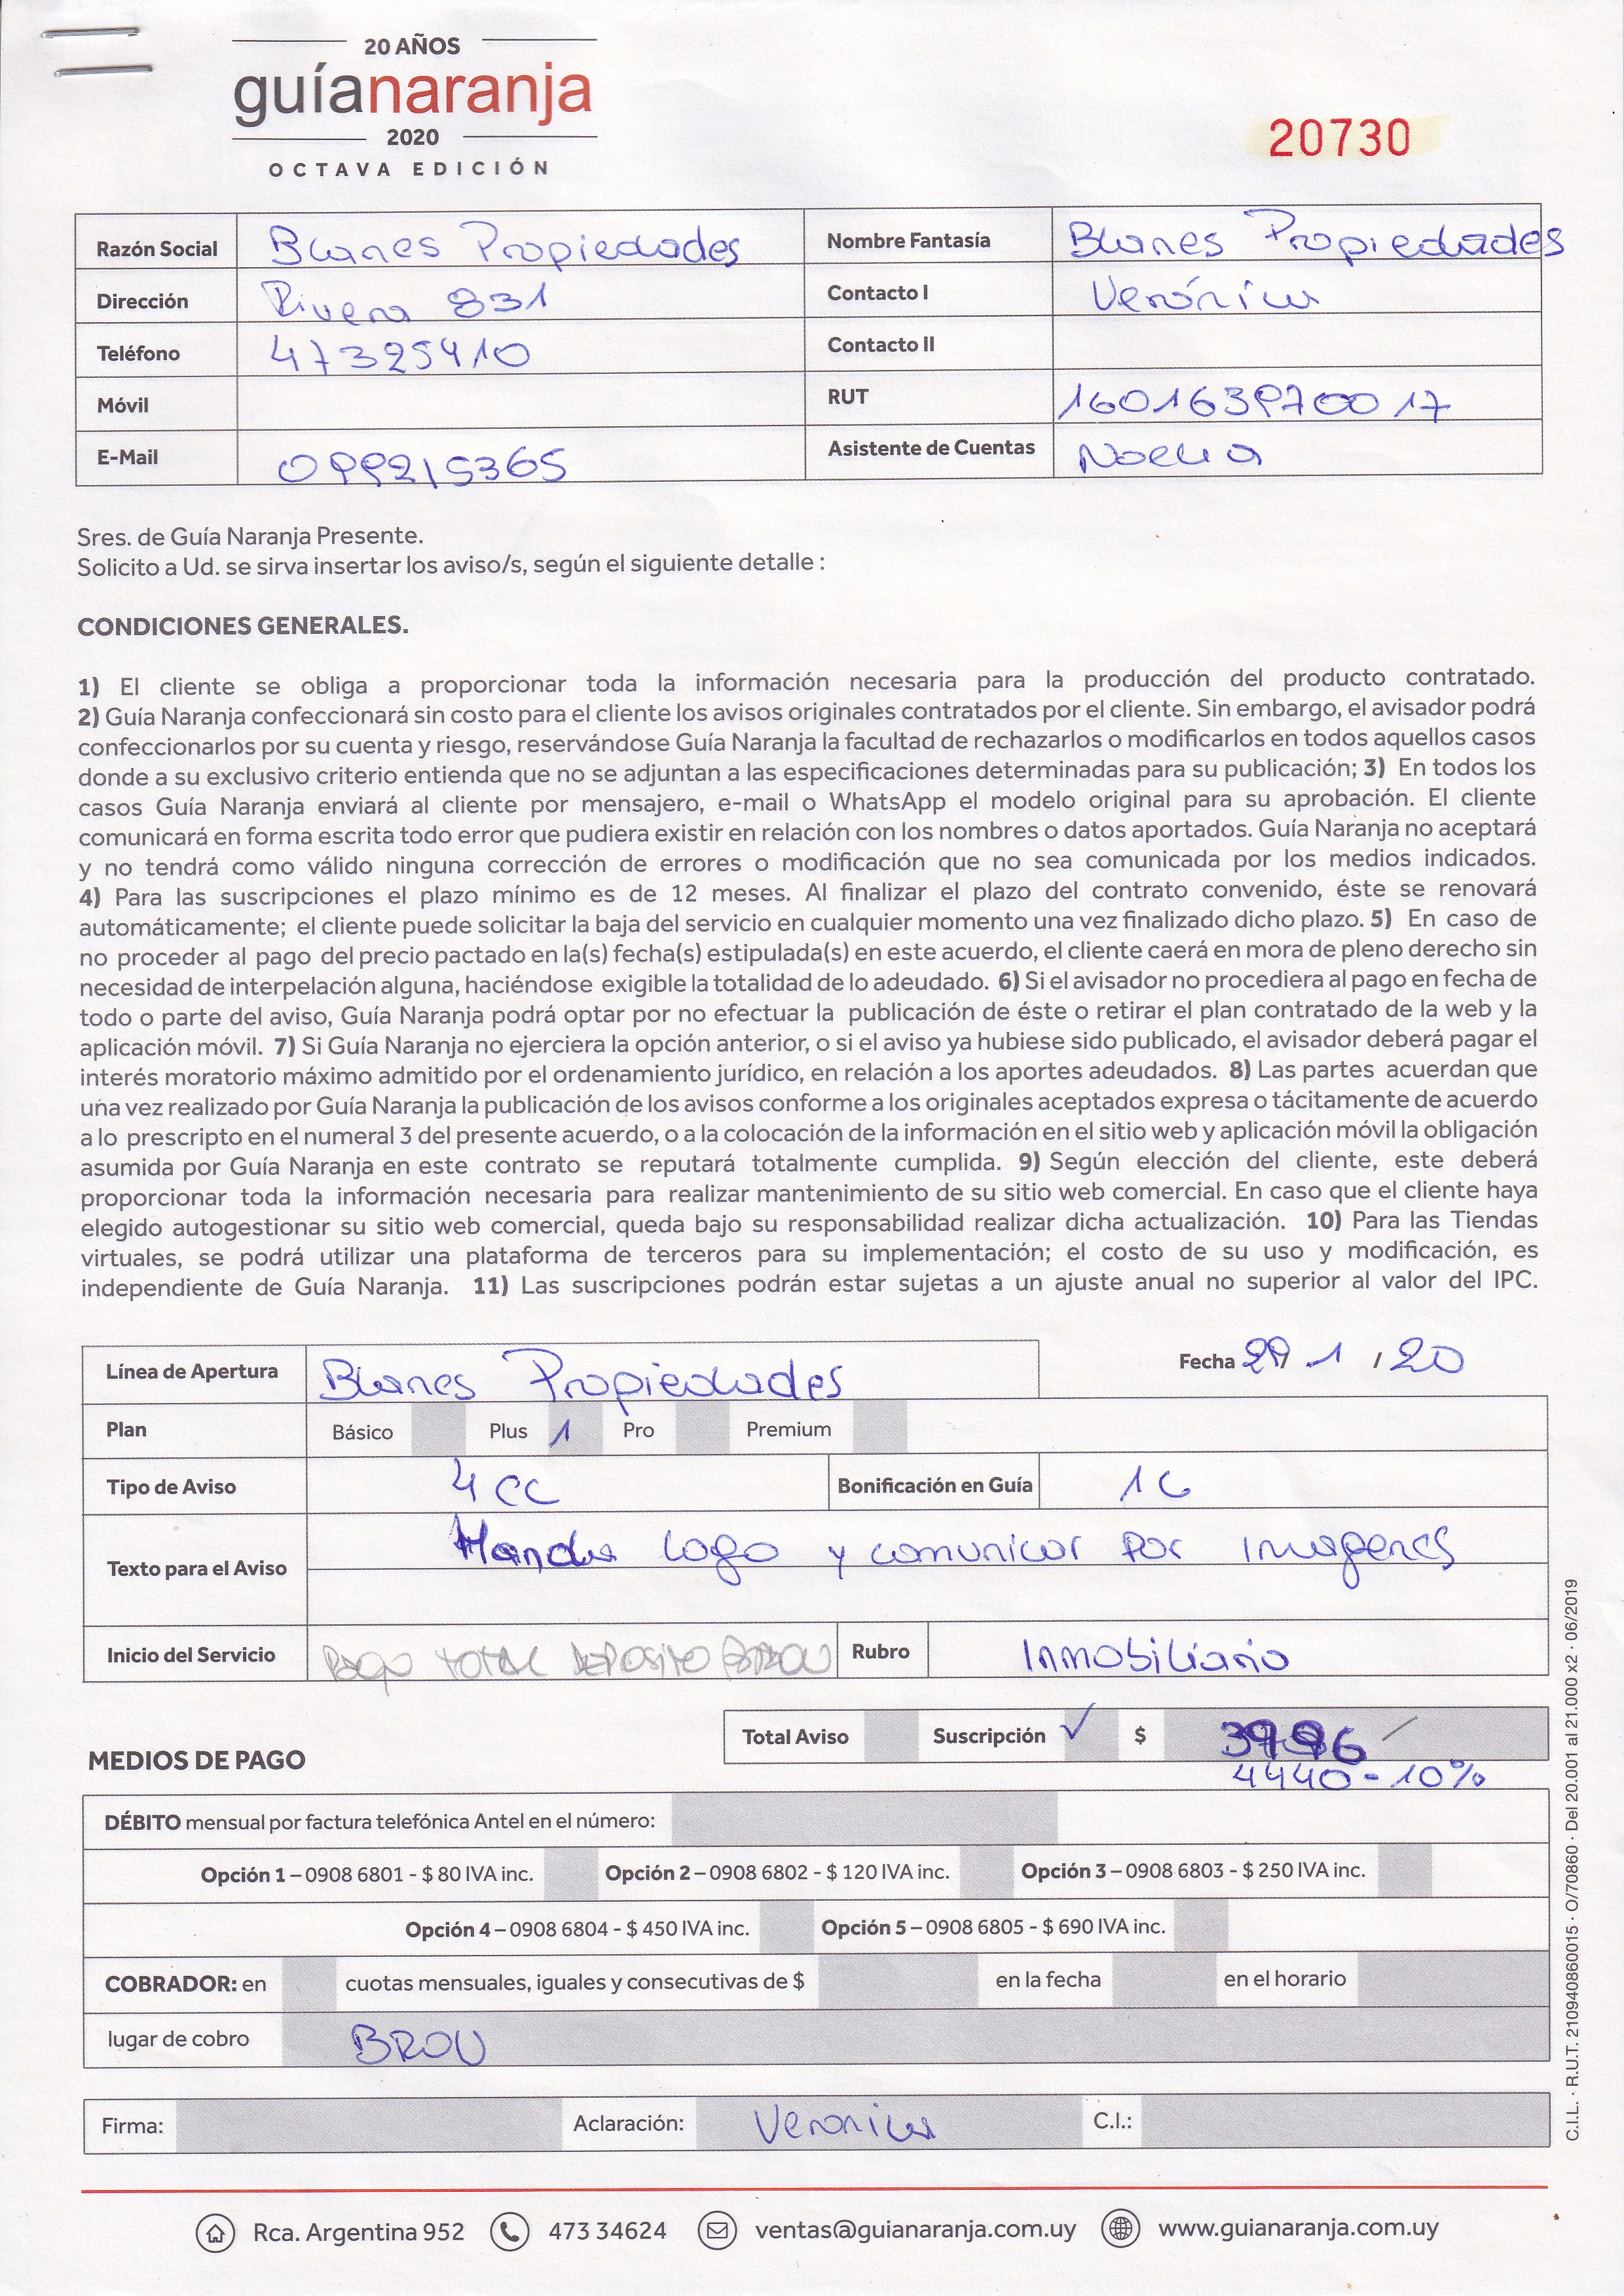 20 AÑOS
guíanaranja
2020
OCTAVA EDICIÓN
20730
Razón Social Blanes Propiedades Nombre Fantasía Blanes Propiedades
Dirección Rivera 831 Contacto I Verónica
Teléfono 47325410 Contacto II
Móvil RUT 160163970017
E-Mail 099215365 Asistente de Cuentas Noelia
Sres. de Guía Naranja Presente.
Solicito a Ud. se sirva insertar los aviso/s, según el siguiente detalle :
CONDICIONES GENERALES.
1) El cliente se obliga a proporcionar toda la información necesaria para la producción del producto contratado.
2) Guía Naranja confeccionará sin costo para el cliente los avisos originales contratados por el cliente. Sin embargo, el avisador podrá
confeccionarlos por su cuenta y riesgo, reservándose Guía Naranja la facultad de rechazarlos o modificarlos en todos aquellos casos
donde a su exclusivo criterio entienda que no se adjuntan a las especificaciones determinadas para su publicación; 3) En todos los
casos Guía Naranja enviará al cliente por mensajero, e-mail o WhatsApp el modelo original para su aprobación. El cliente
comunicará en forma escrita todo error que pudiera existir en relación con los nombres o datos aportados. Guía Naranja no aceptará
y no tendrá como válido ninguna corrección de errores o modificación que no sea comunicada por los medios indicados.
4) Para las suscripciones el plazo mínimo es de 12 meses. Al finalizar el plazo del contrato convenido, éste se renovará
automáticamente; el cliente puede solicitar la baja del servicio en cualquier momento una vez finalizado dicho plazo. 5) En caso de
no proceder al pago del precio pactado en la(s) fecha(s) estipulada(s) en este acuerdo, el cliente caerá en mora de pleno derecho sin
necesidad de interpelación alguna, haciéndose exigible la totalidad de lo adeudado. 6) Si el avisador no procediera al pago en fecha de
todo o parte del aviso, Guía Naranja podrá optar por no efectuar la publicación de éste o retirar el plan contratado de la web y la
aplicación móvil. 7) Si Guía Naranja no ejerciera la opción anterior, o si el aviso ya hubiese sido publicado, el avisador deberá pagar el
interés moratorio máximo admitido por el ordenamiento jurídico, en relación a los aportes adeudados. 8) Las partes acuerdan que
una vez realizado por Guía Naranja la publicación de los avisos conforme a los originales aceptados expresa o tácitamente de acuerdo
a lo prescripto en el numeral 3 del presente acuerdo, o a la colocación de la información en el sitio web y aplicación móvil la obligación
asumida por Guía Naranja en este contrato se reputará totalmente cumplida. 9) Según elección del cliente, este deberá
proporcionar toda la información necesaria para realizar mantenimiento de su sitio web comercial. En caso que el cliente haya
elegido autogestionar su sitio web comercial, queda bajo su responsabilidad realizar dicha actualización. 10) Para las Tiendas
virtuales, se podrá utilizar una plataforma de terceros para su implementación; el costo de su uso y modificación, es
independiente de Guía Naranja. 11) Las suscripciones podrán estar sujetas a un ajuste anual no superior al valor del IPC.
Línea de Apertura Blanes Propiedades Fecha 29/ 1 / 20
Plan Básico Plus 1 Pro Premium
Tipo de Aviso 4 CC Bonificación en Guía 1C
Texto para el Aviso Manda logo y comunicar por Imagenes
Inicio del Servicio PAGO TOTAL DEPOSITO BROU Rubro Inmobiliario
Total Aviso Suscripción ✓ $ 3996
4440 - 10%
MEDIOS DE PAGO
DÉBITO mensual por factura telefónica Antel en el número:
Opción 1 – 0908 6801 - $ 80 IVA inc. Opción 2 – 0908 6802 - $ 120 IVA inc. Opción 3 – 0908 6803 - $ 250 IVA inc.
Opción 4 – 0908 6804 - $ 450 IVA inc. Opción 5 – 0908 6805 - $ 690 IVA inc.
COBRADOR: en cuotas mensuales, iguales y consecutivas de $ en la fecha en el horario
lugar de cobro BROU
Firma: Aclaración: Veronica C.I.:
Rca. Argentina 952 473 34624 ventas@guianaranja.com.uy www.guianaranja.com.uy
C.I.L. · R.U.T. 210940860015 · O/70860 · Del 20.001 al 21.000 x2 · 06/2019